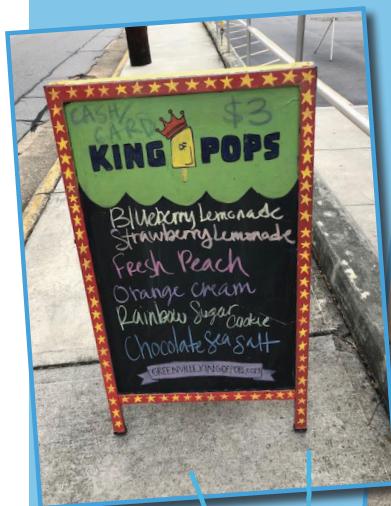 CASH/ $3
CARD
KING OF POPS
Blueberry Lemonade
Strawberry Lemonade
Fresh Peach
Orange Cream
Rainbow Sugar Cookie
Chocolate Sea Salt
GREENVILLE.KINGOFPOPS.COM